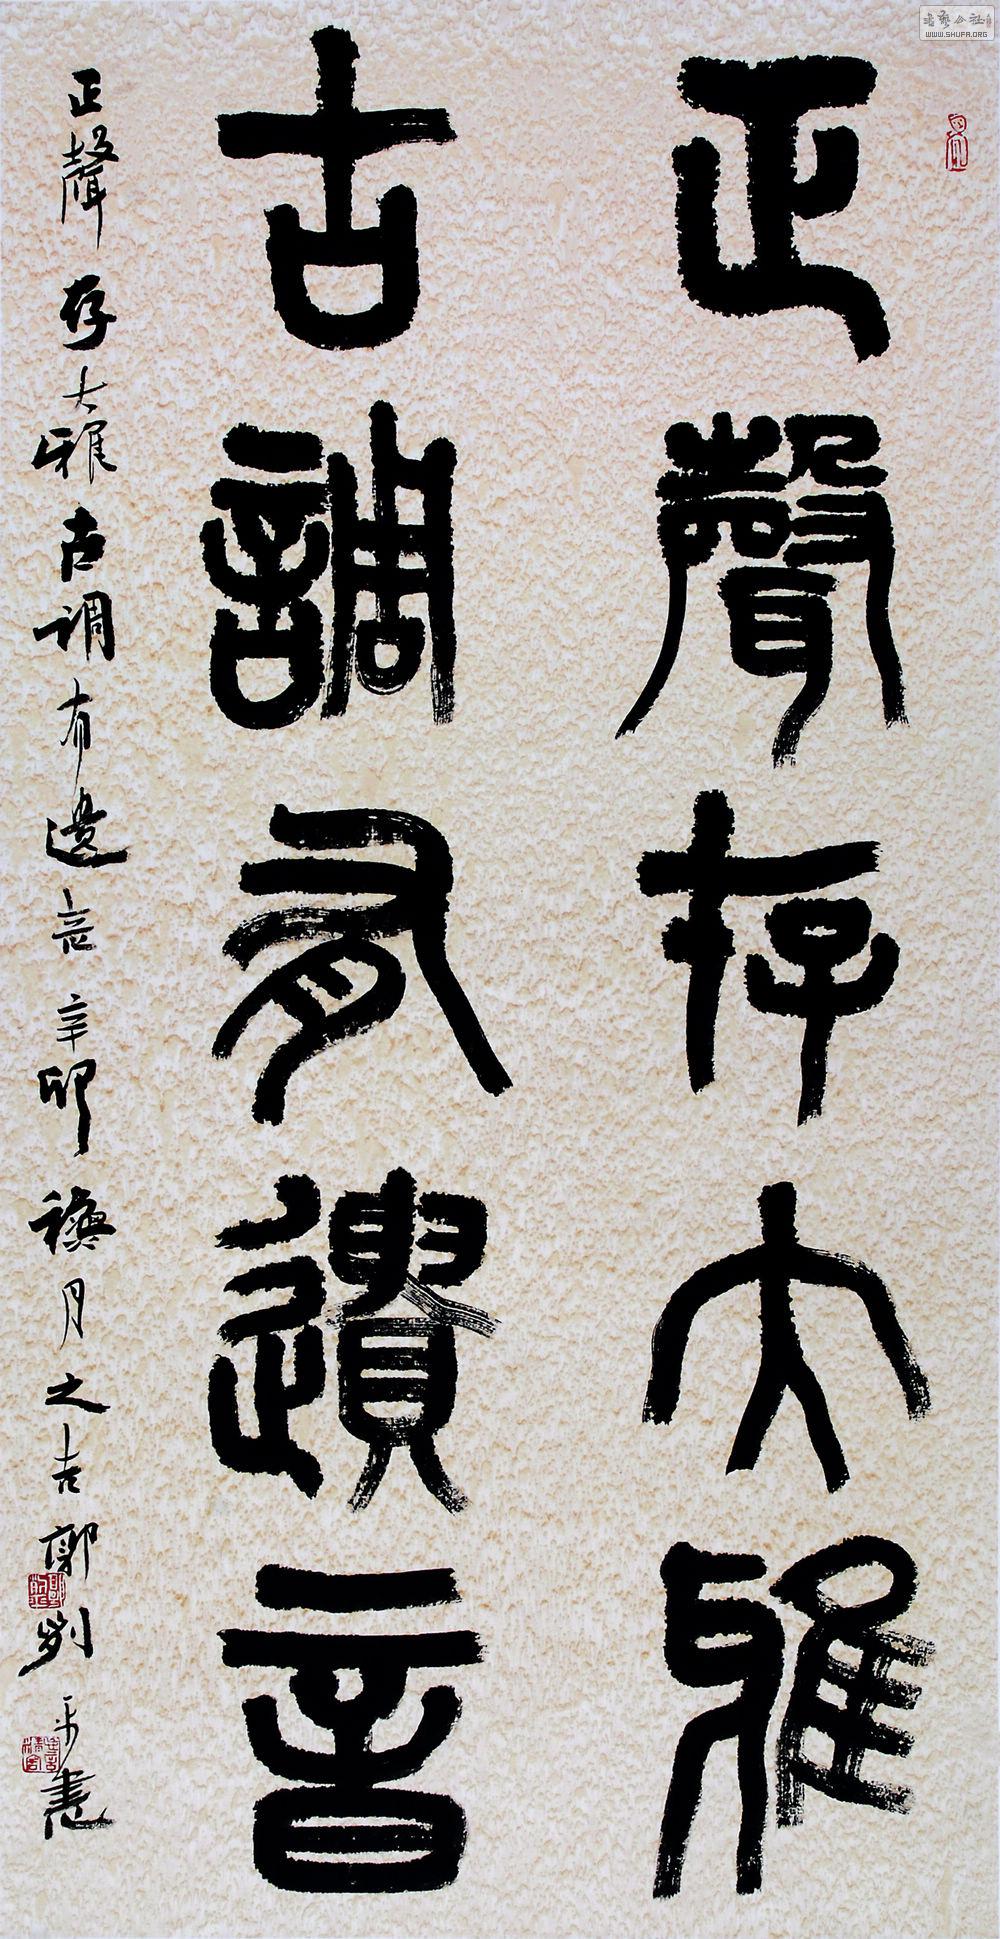 正聲存大雅
古調有遺音
正聲存大雅古調有遺音辛卯
月之吉郭列平書
书艺公社
WWW.SHUFA.ORG